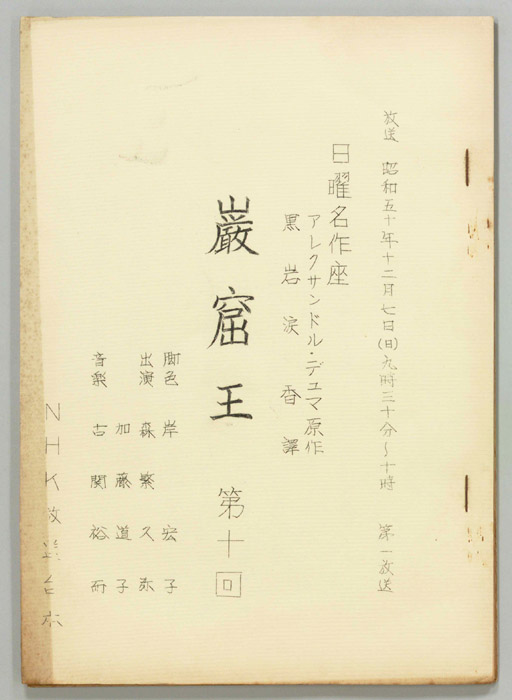 放送 昭和五十年十二月七日(日)九時三十分〜十時 第一放送
日曜名作座
アレクサンドル・デュマ原作
黒岩涙香譯
巌窟王 第十回
脚色 岸宏子
出演 森繁久弥
加藤道子
音楽 古関裕而
NHK放送台本